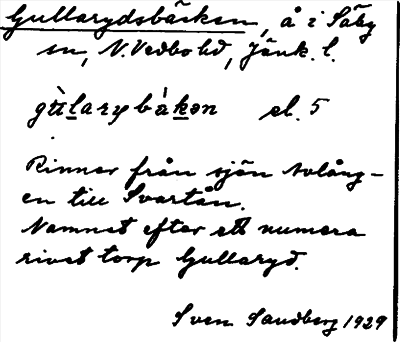 Gullarydsbäcken, å i Säby
sn, N. Vedbo hd, Jönk. l.
gù̀laryd bàkən el. 5
Rinner från sjön Noläng-
en till Svartån.
Namnet efter ett numera
rivet torp Gullaryd.
Sven Sandberg 1929